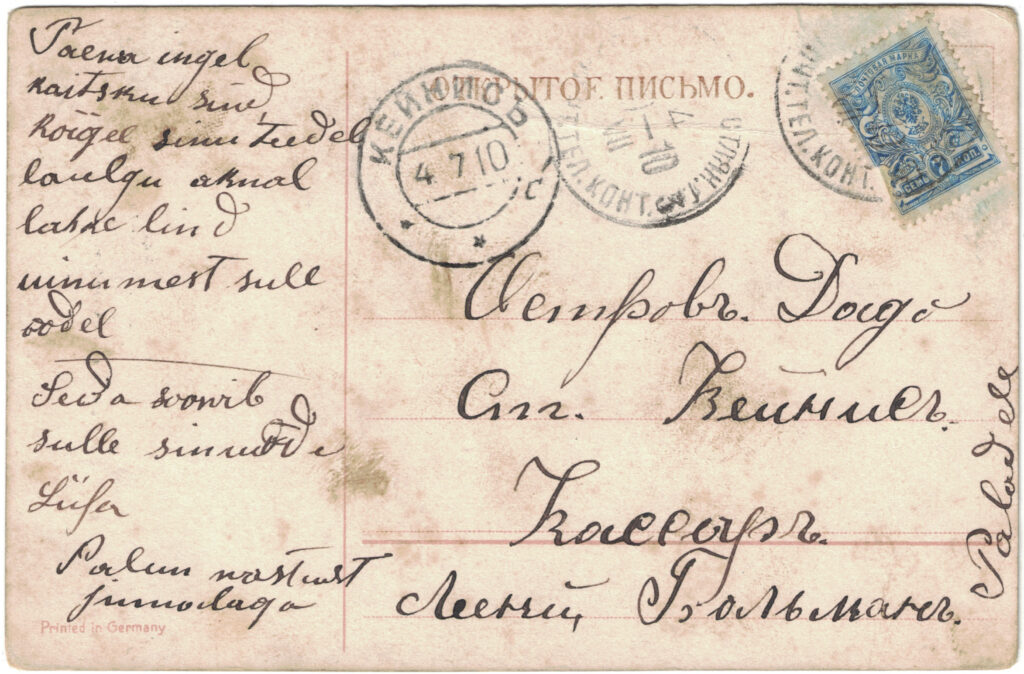 Paewa ingel
kaitsku sind
kõigel sinu teedel
laulgu aknal
lahke lind
uinumest sulle
öödel
Seda soovib
sulle sinu õde
Liisa
Palun wastust
Printed in Germany
ОТКРЫТОЕ ПИСЬМО.
КЕЙНИСЪ
4 7 10
ТЕЛ.КОНТ.
ТЕЛ.КОНТ.
ПОЧТОВАЯ МАРКА
7
СЕМЬ КОП.
Островъ. Даго
Ст. Кейнисъ.
Кассаръ.
Лений Больманъ.